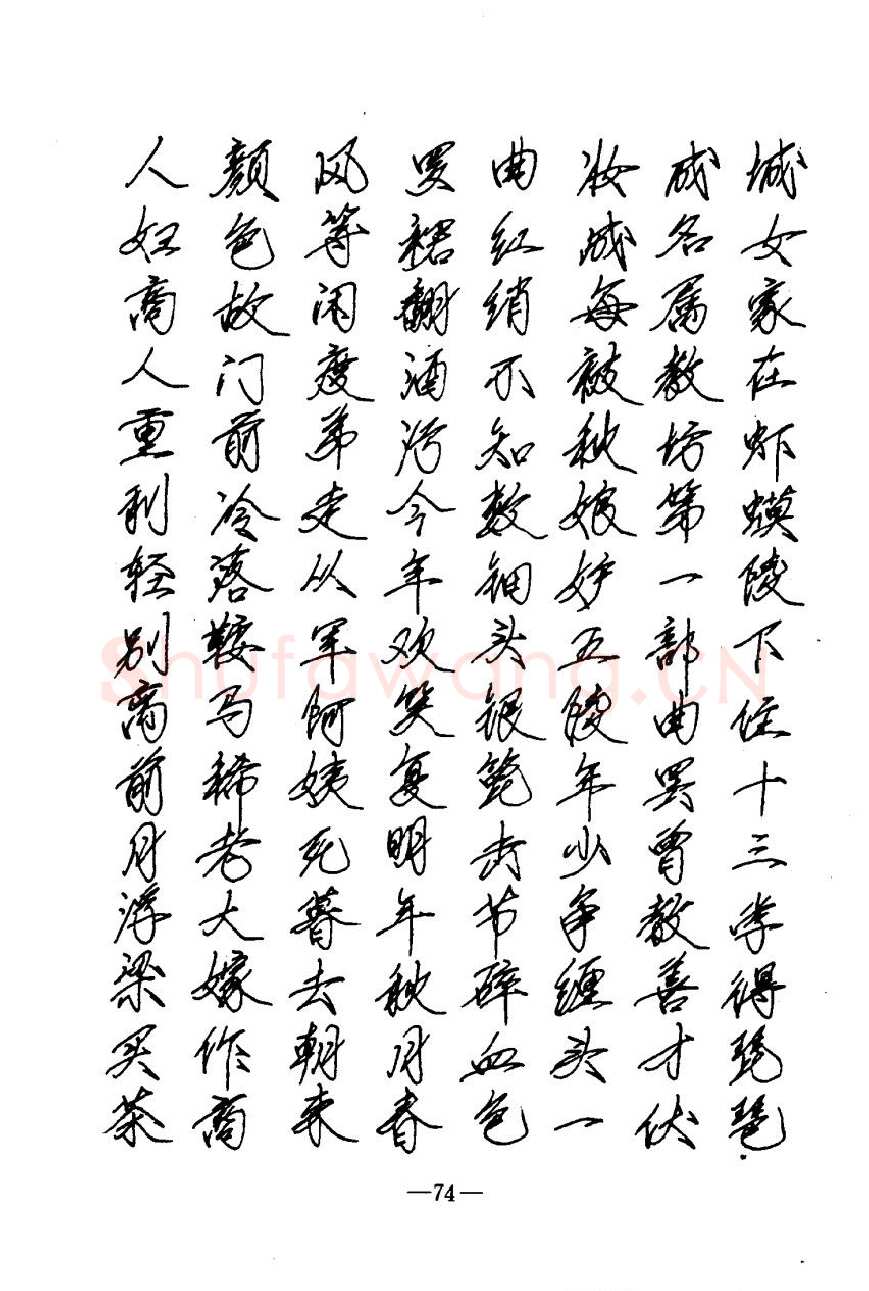 城女家在虾蟆陵下住十三学得琵琶
成名属教坊第一部曲罢曾教善才伏
妆成每被秋娘妒五陵年少争缠头一
曲红绡不知数钿头银篦击节碎血色
罗裙翻酒污今年欢笑复明年秋月春
风等闲度弟走从军阿姨死暮去朝来
颜色故门前冷落鞍马稀老大嫁作商
人妇商人重利轻别离前月浮梁买茶
—74—
Shufawang.CN